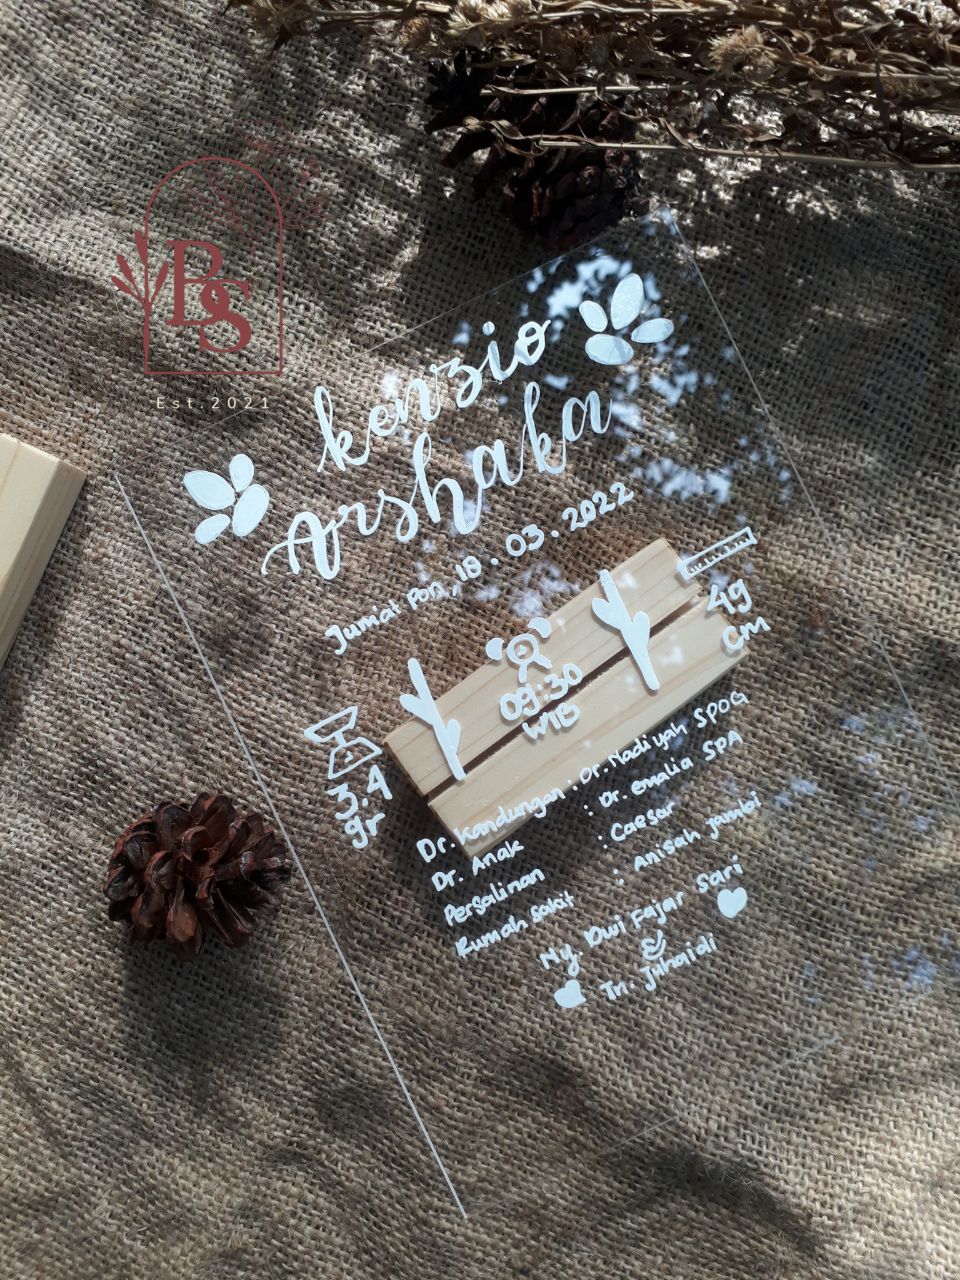 BS
Est.2021
kenzio
Arshaka
Jumat Pon, 18.03.2022
49
cm
09:30
WIB
3.4
gr
Dr. Kandungan : Dr. Nadiyah SPOG
Dr. Anak : Dr. emalia SPA
Persalinan : Caesar
Rumah sakit : Anisah jambi
Ny. Dwi Fajar Sari
&
Tn. Juhaidi